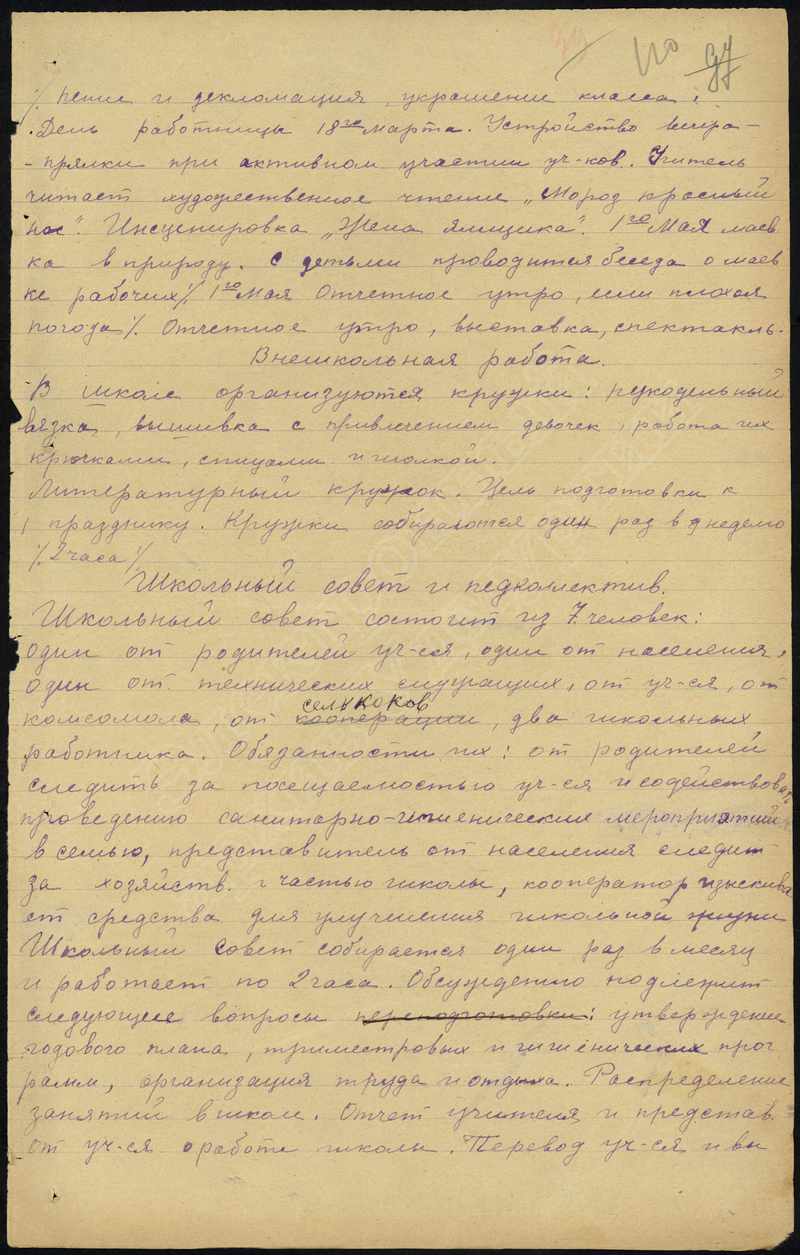 110 97
% пение и декломация, украшение класса;
День работницы 18го марта. Устройство вечера-
-прялки при активном участии уч-ков. Учитель
читает художественное чтение „Мороз красный
нос". Инсценировка „Жена ямщика". 1го Мая маев
ка в природу. С детьми проводится беседа о маев
ке рабочих % 1го Мая Отчетное утро, если плохая
погода %. Отчетное утро, выставка, спектакль.
Внешкольная работа.
В школе организуются кружки: рукодельный
вязка, вышивка с привлечением девочек, работа их
крючками, спицами иголкой.
Литературный кружок. Цель подготовки к
празднику. Кружки собираются один раз в неделю
% 2 часа %
Школьный совет и педколлектив.
Школьный совет состоит из 7 человек:
один от родителей уч-ся, один от населения,
один от технических служащих, от уч-ся, от
комсомола, от кооперации, два школьных
работника. Обязанности их: от родителей
следить за посещаемостью уч-ся и содействовать
проведению санитарно-гигиенических мероприятий
в семью, представитель от населения следит
за хозяйств. частью школы, кооператор изыскива
ет средства для улучшения школьной жизни
Школьный совет собирается один раз в месяц
и работает по 2 часа. Обсуждению подлежит
следующие вопросы переподготовки: утверждение
годового плана, триместровых и гигиенических прог
рамм, организация труда и отдыха. Распределение
занятий в школе. Отчет учителя и представ.
от уч-ся о работе школы. Перевод уч-ся и вы